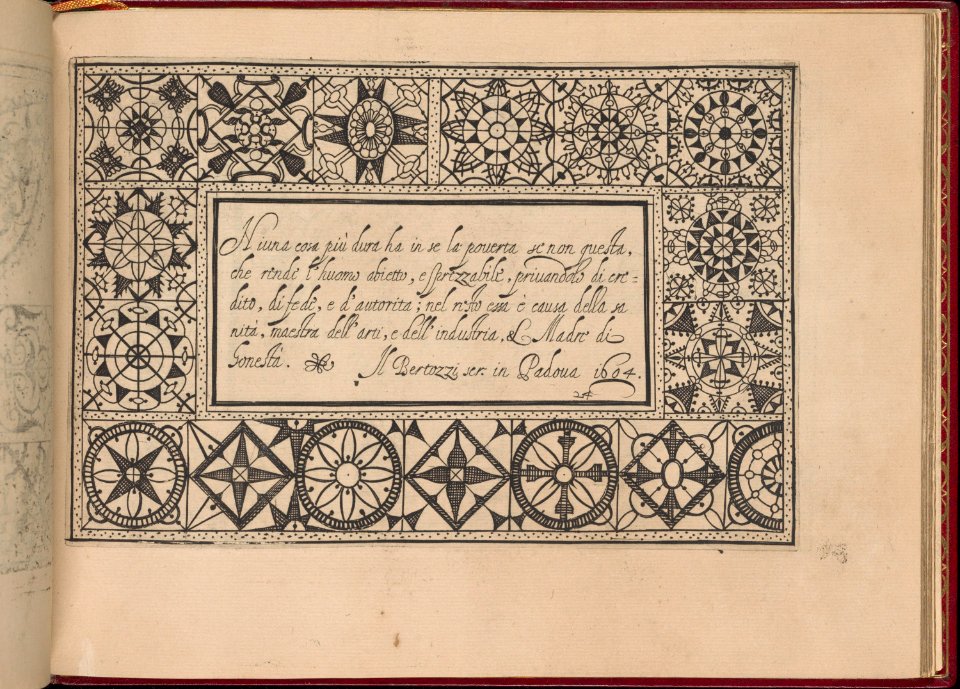 Niuna cosa più dura ha in se la pouerta se non questa,
che rende l'huomo abietto, e sprezzabile, priuandolo di cre-
dito, di fede, e d'autorita; nel resto essa è causa della sa
nità, maestra dell'arti, e dell'industria, & Madre di
honestà.
Il Bertozzi scr. in Padoua 1604.
24